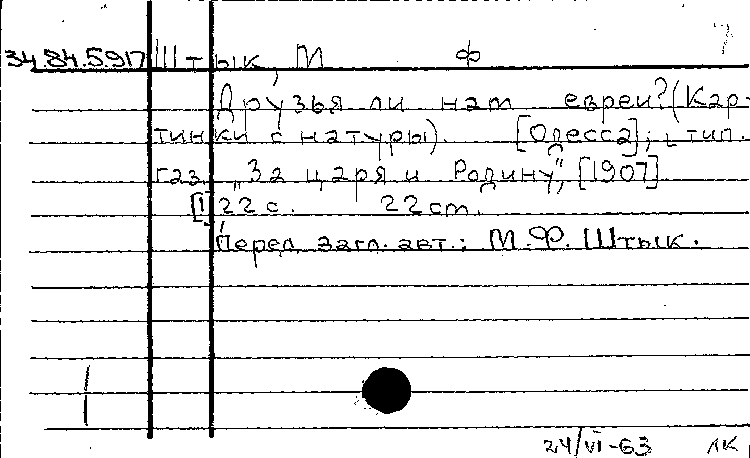 34.84.5.917 Штык, М Ф
Друзья ли нам евреи? (Кар-
тинки с натуры). [Одесса], тип.
газ. „За царя и Родину", [1907]
[1] 22 с. 22 cm.
Перед загл. авт.: М.Ф. Штык.
24/VI-63 ЛК